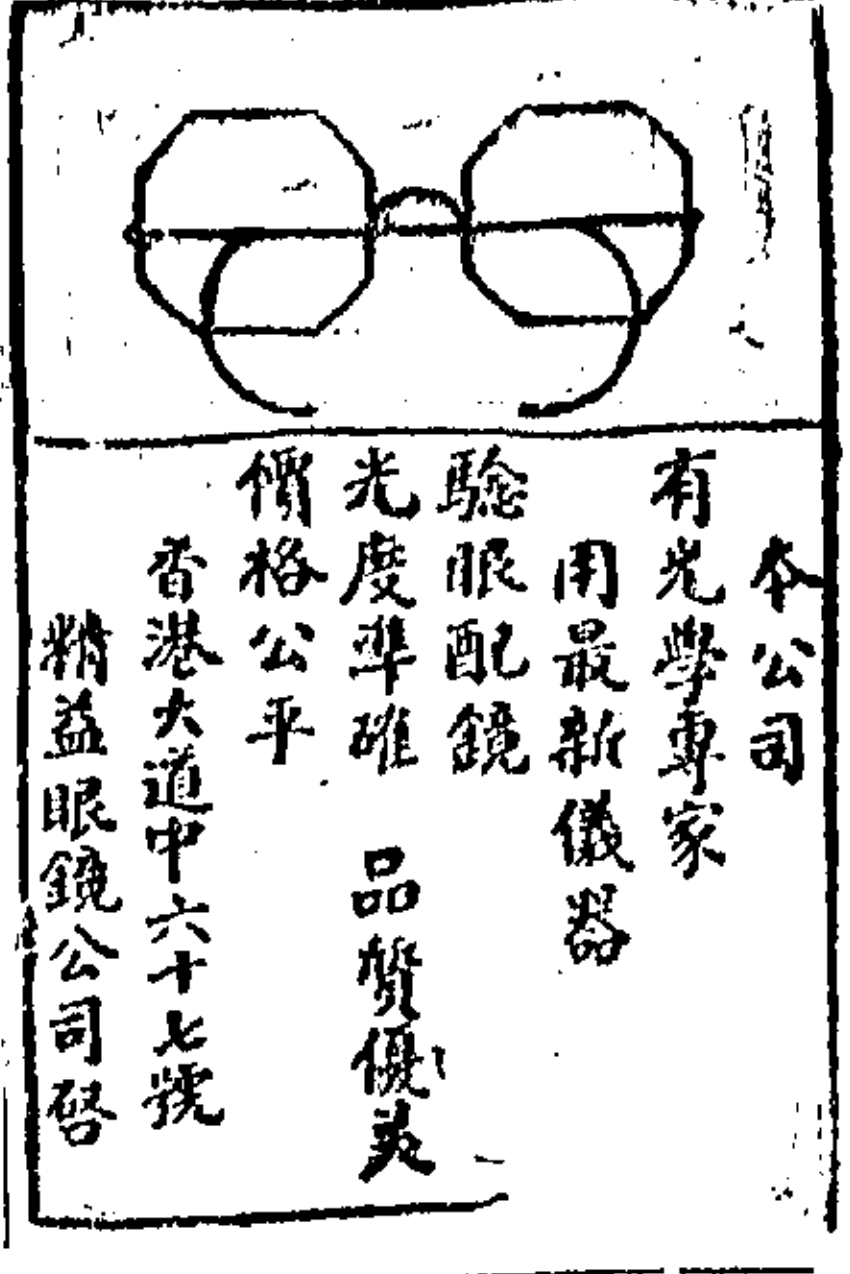 本公司
有光學專家
用最新儀器
驗眼配鏡
光度準確 品質優美
價格公平
香港大道中六十七號
精益眼鏡公司啓